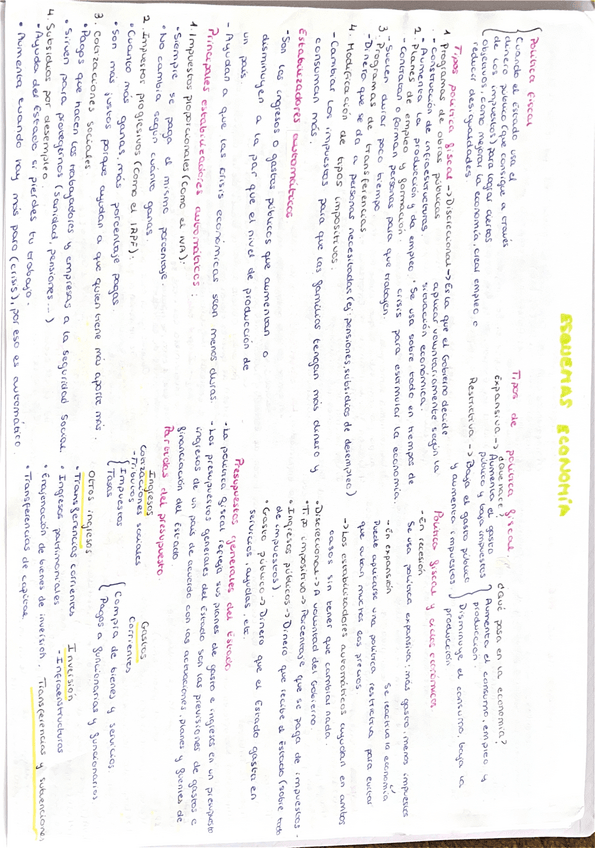 ESQUEMAS ECONOMÍA
Política fiscal
Cuando el Estado usa el
dinero público (que consigue a través
de los impuestos) para lograr ciertos
objetivos, como mejorar la economía, crear empleo o
reducir desigualdades
Tipos política fiscal -> Discrecional -> Es la que el Gobierno decide
aplicar voluntariamente según la
situación económica.
1. Programas de obras públicas
- Construcción de infraestructuras.
- Aumenta la producción y da empleo. Se usa sobre todo en tiempos de
crisis para estimular la economía.
2. Planes de empleo y formación
- Contratan o forman personas para que trabajen.
- Suelen durar poco tiempo
3. Programas de transferencias
- Dinero que se da a personas necesitadas (ej: pensiones, subsidios de desempleo)
4. Modificación de tipos impositivos.
- Cambiar los impuestos para que las familias tengan más dinero y
consuman más.
Estabilizadores automáticos
- Son los ingresos o gastos públicos que aumentan o
disminuyen a la par que el nivel de producción de
un país
- Ayudan a que las crisis económicas sean menos duras.
Principales estabilizadores automáticos:
1. Impuestos proporcionales (Como el IVA).
• Siempre se paga el mismo porcentaje.
• No cambia según cuanto ganas.
2. Impuestos progresivos (Como el IRPF).
• Cuanto más ganas, más porcentaje pagas
• Son más justos porque ayudan a que quien tiene más aporte más.
3. Cotizaciones sociales
• Pagos que hacen los trabajadores y empresas a la seguridad social
• Sirven para protegernos (sanidad, pensiones...)
4. Subsidios por desempleo.
• Ayuda del Estado si pierdes tu trabajo.
• Aumenta cuando hay más paro (crisis), por eso es automático
Tipos de política fiscal
¿Qué hace?
¿Qué pasa en la economía?
Expansiva -> Aumenta el gasto
público y baja impuestos
Aumenta el consumo, empleo y
producción.
Restrictiva -> Baja el gasto público
y aumenta impuestos
Disminuye el consumo, baja la
producción
Política fiscal y ciclos económicos
- En recesión
Se usa política expansiva, más gasto, menos impuestos
Se reactiva la economía
- En expansión
Puede aplicarse una política restrictiva para evitar
que suban mucho los precios
-> Los estabilizadores automáticos ayudan en ambos
casos sin tener que cambiar nada.
• Discrecional -> A voluntad del Gobierno.
• Tipo impositivo -> Porcentaje que se paga de impuestos.
• Ingresos públicos -> Dinero que recibe el Estado (sobre todo
de impuestos)
• Gasto público -> Dinero que el Estado gasta en
servicios, ayudas, etc.
Presupuestos generales del Estado.
- La política fiscal refleja sus planes de gasto e ingresos en un presupuesto
- Los presupuestos generales del Estado son las previsiones de gastos e
ingresos de un país de acuerdo con las actuaciones, planes y fuentes de
financiación del Estado
Partidas del presupuesto.
Ingresos
Cotizaciones sociales
- Tributos
Impuestos
Tasas
Otros ingresos
• Transferencias corrientes
• Ingresos patrimoniales
• Enajenación de bienes de inversión.
• Transferencias de capital
Gastos
Corrientes
Compra de bienes y servicios.
Pagos a funcionarias y funcionarios
Inversión
- Infraestructuras
Transferencias y subvenciones